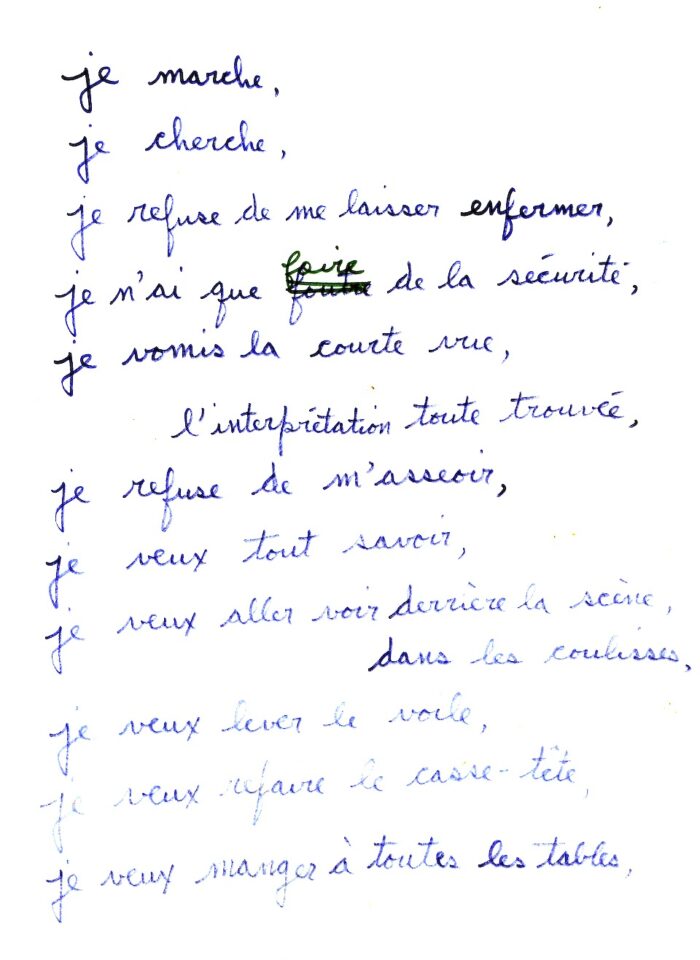 je marche,
je cherche,
je refuse de me laisser enfermer,
je n'ai que faire de la sécurité,
je vomis la courte vue,
l'interprétation toute trouvée,
je refuse de m'asseoir,
je veux tout savoir,
je veux aller voir derrière la scène,
dans les coulisses,
je veux lever le voile,
je veux refaire le casse-tête,
je veux manger à toutes les tables,